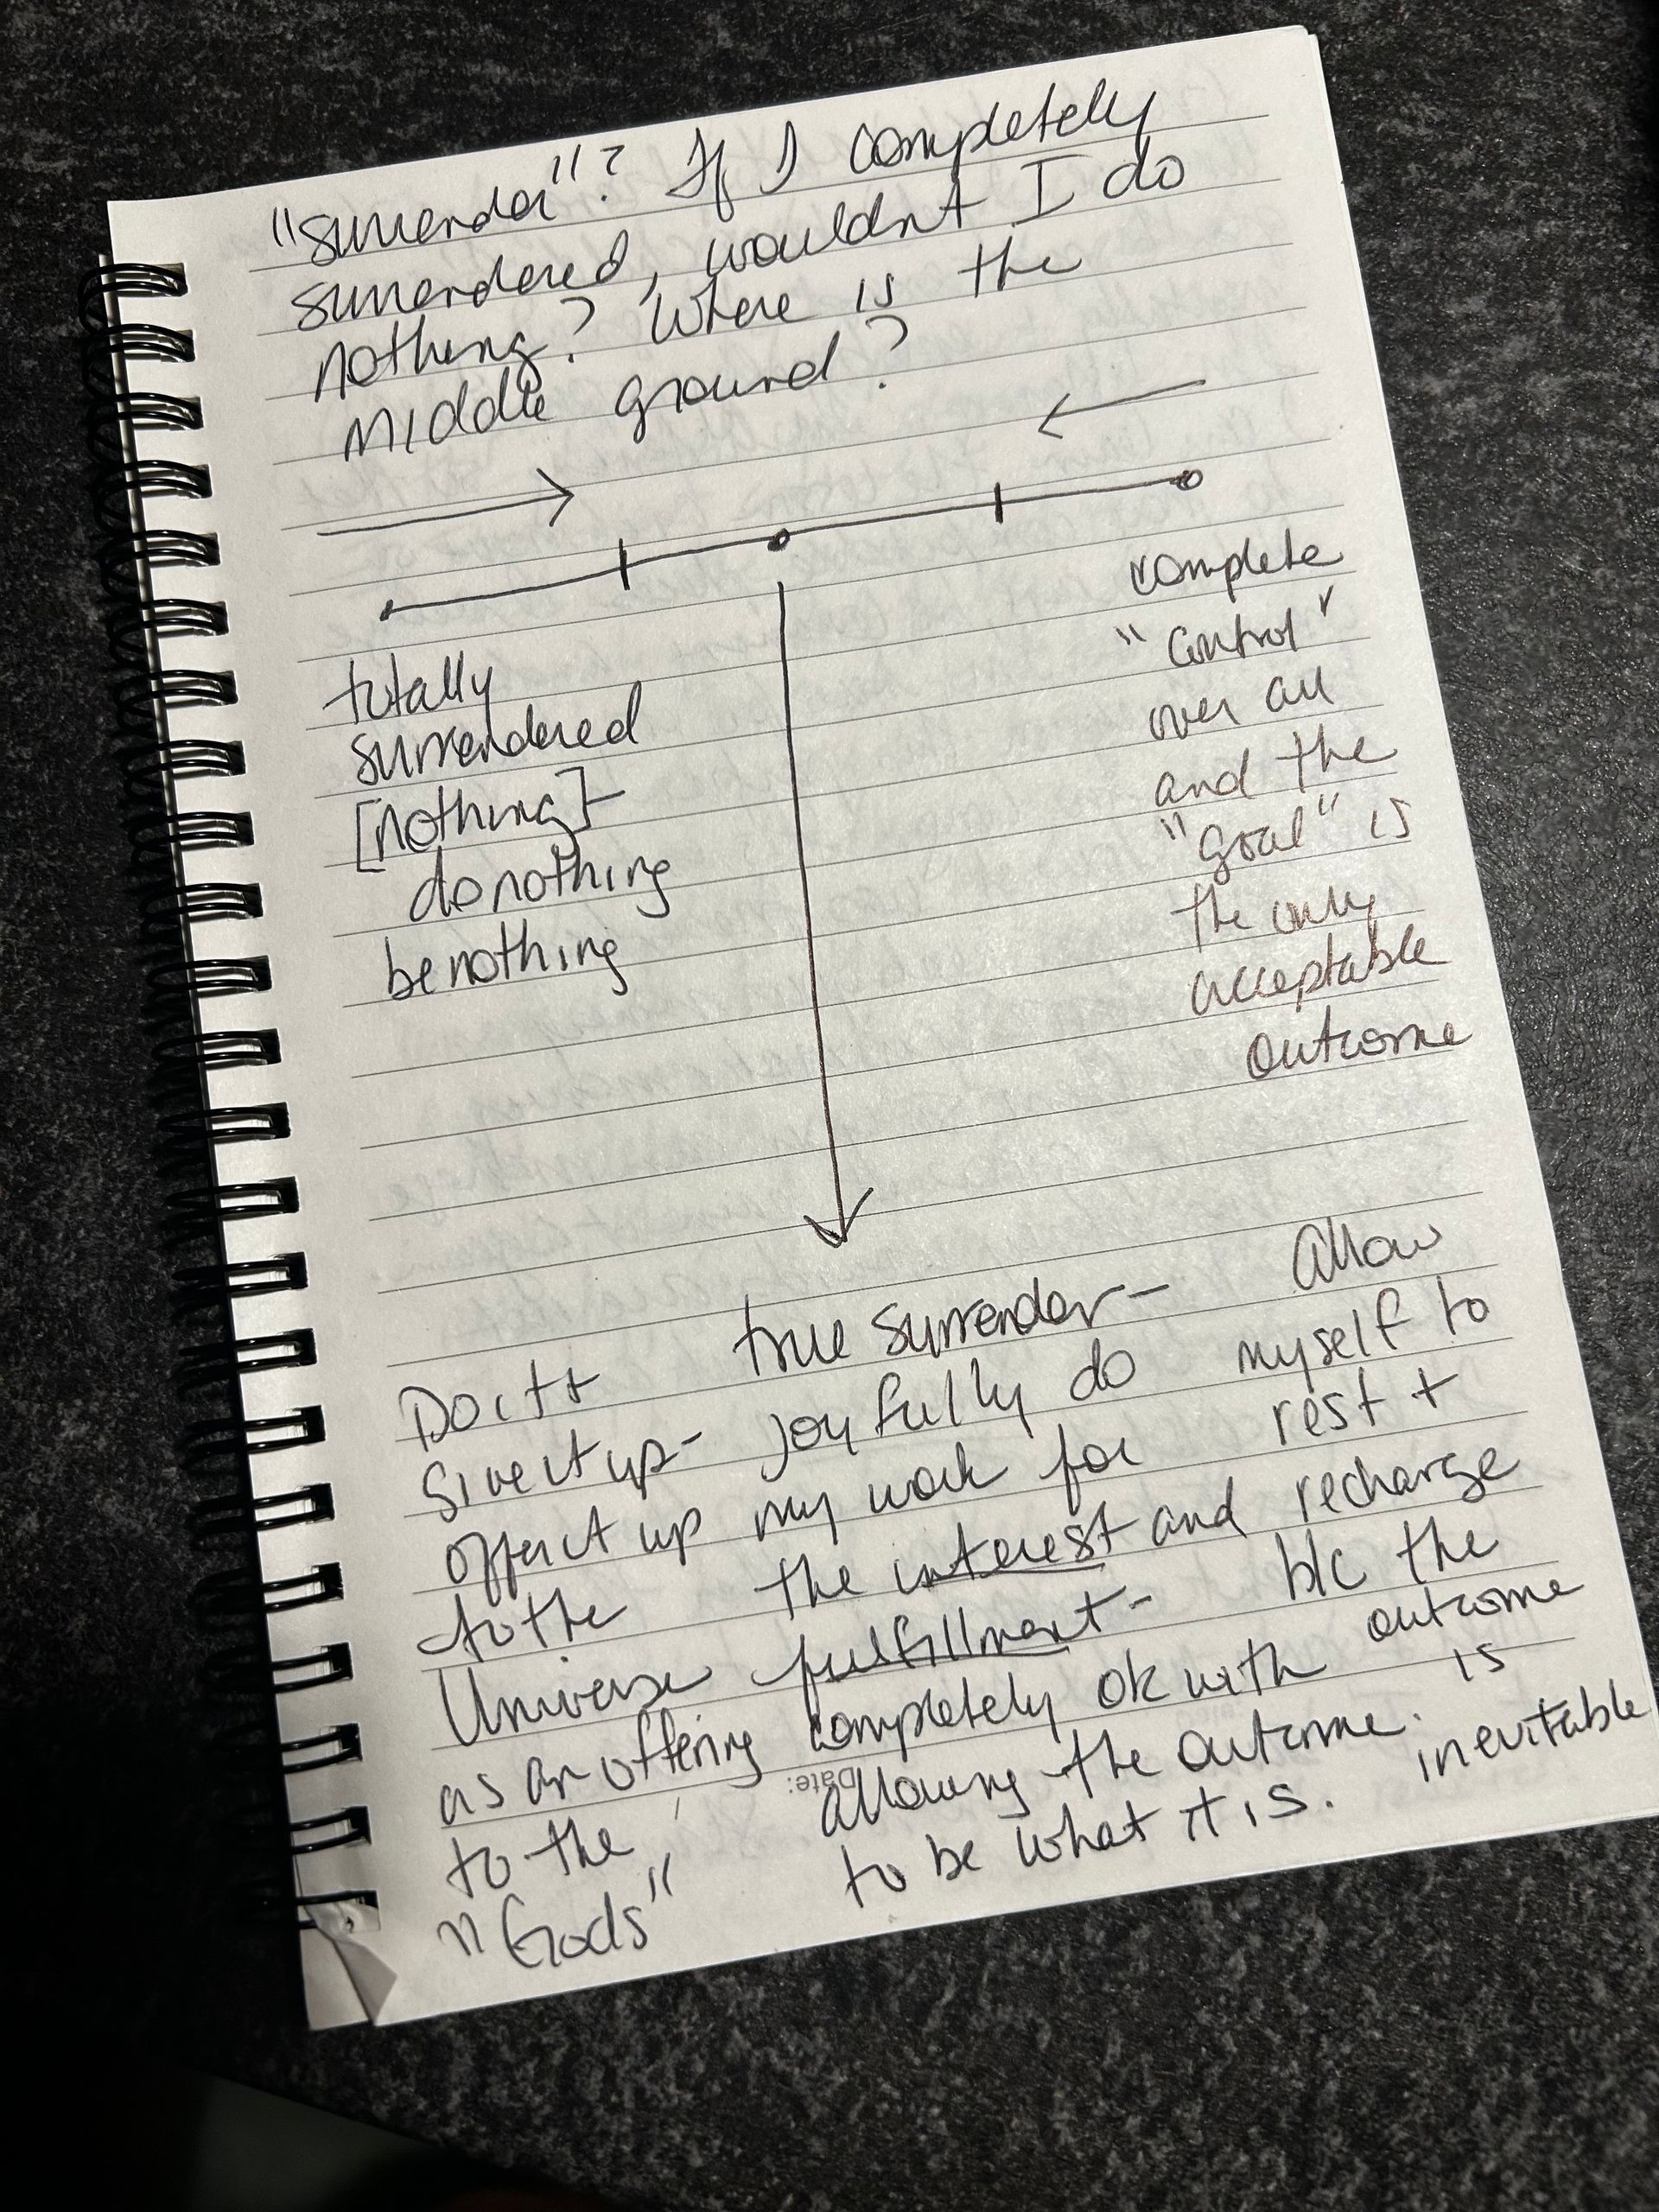 "surrender"? If I completely
surrendered, wouldnt I do
nothing? Where is the
middle ground?
totally
surrendered
[nothing]-
do nothing
be nothing
complete
"Control"
over all
and the
"Goal" is
the only
acceptable
outcome
Do it +
give it up-
offer it up
to the
Universe
as an offering
to the
"Gods"
true surrender-
joyfully do
my work for
the interest and
fulfillment-
completely ok with
allowing the outcome
to be what it is.
Allow
myself to
rest +
recharge
b/c the
outcome
is
inevitable
Date: